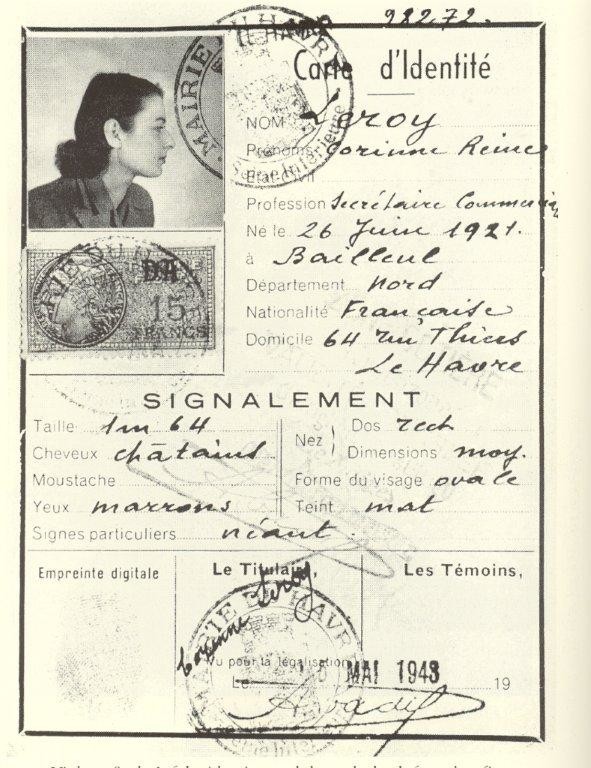 98272.
Carte d'Identité
NOM Leroy
Prénoms Corinne Reine
Etat civil
Profession Secrétaire Commerciale
Né le 26 Juin 1921.
à Bailleul
Département Nord
Nationalité Française
Domicile 64 rue Thiers
Le Havre
MAIRIE DU HAVRE
Seine Inférieure
DA
15
FRANCS
SIGNALEMENT
Taille 1m 64
Cheveux châtains
Moustache
Yeux marrons
Signes particuliers néant.
Nez
Dos rect
Dimensions moy.
Forme du visage ovale
Teint mat
Empreinte digitale
Le Titulaire,
Les Témoins,
Corinne Leroy
MAIRIE DU HAVRE
Vu pour la légalisation
Le MAI 1943 19